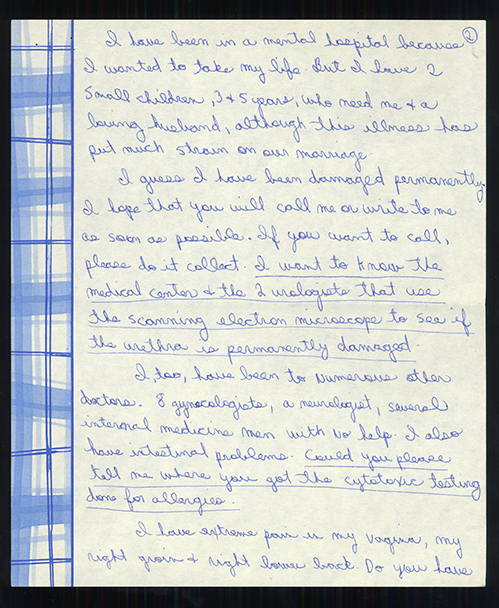 I have been in a mental hospital because ②
I wanted to take my life. But I have 2
small children, 3 & 5 years, who need me & a
loving husband, although this illness has
put much strain on our marriage
I guess I have been damaged permanently.
I hope that you will call me or write to me
as soon as possible. If you want to call,
please do it collect. I want to know the
medical center & the 2 urologists that use
the scanning electron microscope to see if
the urethra is permanently damaged.
I too, have been to numerous other
doctors. 8 gynecologists, a neurologist, several
internal medicine men with no help. I also
have intestinal problems. Could you please
tell me where you got the cytotoxic testing
done for allergies.
I have extreme pain in my vagina, my
right groin & right lower back. Do you have